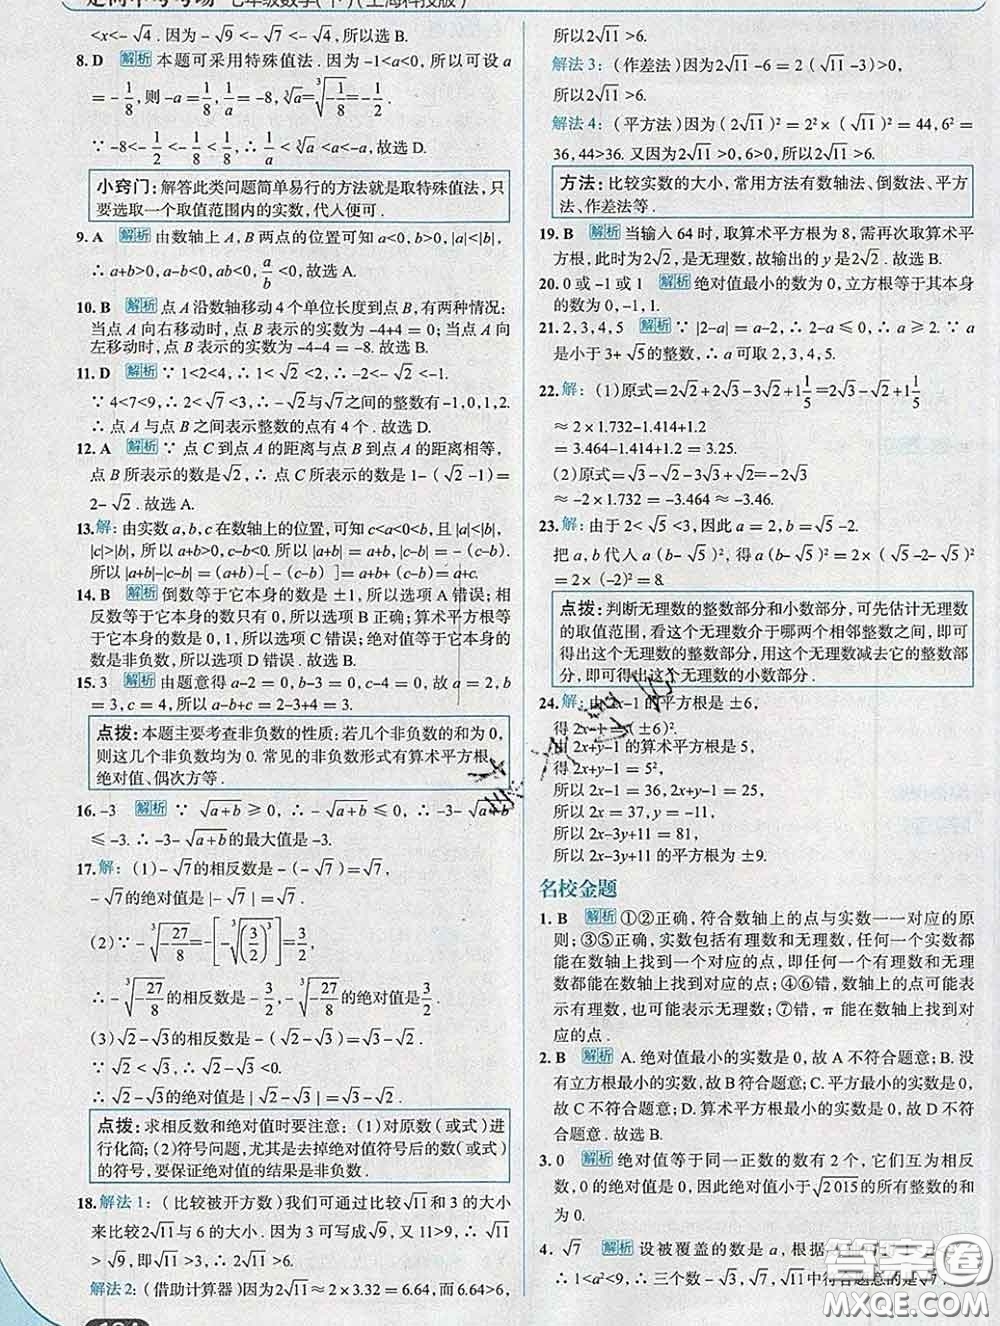 走向中考考场 七年级数学(下)(上海科技版)
<x<-√4.因为-√9<-√7<-√4,所以选B.
8.D 解析 本题可采用特殊值法.因为-1<a<0,所以可设a
=-1/8,则-a=1/8,1/a=-8,∛a=∛(-1/8)=-1/2.
∵-8<-1/2<-1/8<1/8,∴1/a<∛a<a<-a.故选D.
小窍门:解答此类问题简单易行的方法就是取特殊值法,只
要选取一个取值范围内的实数,代入便可.
9.A 解析 由数轴上A,B两点的位置可知a<0,b>0,|a|<|b|,
∴a+b>0,a-b<0,ab<0,a/b<0,故选A.
10.B 解析 点A沿数轴移动4个单位长度到点B,有两种情况:
当点A向右移动时,点B表示的实数为-4+4=0;当点A向
左移动时,点B表示的实数为-4-4=-8.故选B.
11.D 解析 ∵1<2<4,∴1<√2<2,∴-2<-√2<-1.
∵4<7<9,∴2<√7<3,∴-√2与√7之间的整数有-1,0,1,2.
∴点A与点B之间表示整数的点有4个.故选D.
12.A 解析 ∵点C到点A的距离与点B到点A的距离相等,
点B所表示的数是√2,∴点C所表示的数是1-(√2-1)=
2-√2.故选A.
13.解:由实数a,b,c在数轴上的位置,可知c<a<0<b,且|a|<|b|,
|c|>|b|,所以a+b>0,c-b<0.所以|a+b|=a+b,|c-b|=-(c-b).
所以|a+b|-|c-b|=(a+b)-[-(c-b)]=(a+b)+(c-b)=a+c.
14.B 解析 倒数等于它本身的数是±1,所以选项A错误;相
反数等于它本身的数只有0,所以选项B正确;算术平方根等
于它本身的数是0,1,所以选项C错误;绝对值等于它本身的
数是非负数,所以选项D错误.故选B.
15.3 解析 由题意得a-2=0,b-3=0,c-4=0,故a=2,b=
3,c=4,所以a-b+c=2-3+4=3.
点拨:本题主要考查非负数的性质:若几个非负数的和为0,
则这几个非负数均为0.常见的非负数形式有算术平方根、
绝对值、偶次方等.
16.-3 解析 ∵√(a+b)≥0,∴-√(a+b)≤0,∴-3-√(a+b)
≤-3.∴-3-√(a+b)的最大值是-3.
17.解:(1)-√7的相反数是-(-√7)=√7,
-√7的绝对值是|-√7|=√7.
(2)∵-∛(-27/8)=-[-∛((3/2)³)]=3/2,
∴-∛(-27/8)的相反数是-3/2,-∛(-27/8)的绝对值是3/2.
(3)√2-√3的相反数是-(√2-√3)=√3-√2.
∵√2<√3,∴√2-√3<0.
∴√2-√3的绝对值是|√2-√3|=√3-√2.
点拨:求相反数和绝对值时要注意:(1)对原数(或式)进
行化简;(2)符号问题,尤其是去掉绝对值符号后的数(或式)
的符号,要保证绝对值的结果是非负数.
18.解法1:(比较被开方数)我们可通过比较√11和3的大小
来比较2√11与6的大小.因为3可写成√9,又11>9,∴√11
>√9,即√11>3,所以2√11>6.
解法2:(借助计算器)因为2√11≈2×3.32=6.64,而6.64>6,
所以2√11>6.
解法3:(作差法)因为2√11-6=2(√11-3)>0,
所以2√11>6.
解法4:(平方法)因为(2√11)²=2²×(√11)²=44,6²=
36,44>36.又因为2√11>0,6>0,所以2√11>6.
方法:比较实数的大小,常用方法有数轴法、倒数法、平方
法、作差法等.
19.B 解析 当输入64时,取算术平方根为8,需再次取算术平
方根,此时为2√2,是无理数,故输出的y是2√2.故选B.
20.0或-1或1 解析 绝对值最小的数为0,立方根等于其本身
的数为0,-1,1.
21.2,3,4,5 解析 ∵|2-a|=a-2,∴2-a≤0,∴a≥2.∵a
是小于3+√5的整数,∴a可取2,3,4,5.
22.解:(1)原式=2√2+2√3-3√2+1 1/5=2√3-√2+1 1/5
≈2×1.732-1.414+1.2
=3.464-1.414+1.2=3.25.
(2)原式=√3-√2-3√3+√2=-2√3
≈-2×1.732=-3.464≈-3.46.
23.解:由于2<√5<3,因此a=2,b=√5-2.
把a,b代入a(b-√5)²,得a(b-√5)²=2×(√5-2-√5)²
=2×(-2)²=8.
点拨:判断无理数的整数部分和小数部分,可先估计无理数
的取值范围,看这个无理数介于哪两个相邻整数之间,即可
得出这个无理数的整数部分,用这个无理数减去它的整数部
分,即可得出这个无理数的小数部分.
24.解:由2x-1的平方根是±6,
得2x-1=(±6)².
由2x+y-1的算术平方根是5,
得2x+y-1=5²,
所以2x-1=36,2x+y-1=25,
所以2x=37,y=-11,
所以2x-3y+11=81,
所以2x-3y+11的平方根为±9.
名校金题
1.B 解析 ①②正确,符合数轴上的点与实数一一对应的原
则;③⑤正确,实数包括有理数和无理数,任何一个实数都
能在数轴上找到一个对应的点,即任何一个有理数和无理
数都能在数轴上找到对应的点;④⑥错,数轴上的点可能表
示有理数,也可能表示无理数;⑦错,π能在数轴上找到对
应的点.
2.B 解析 A.绝对值最小的实数是0,故A不符合题意;B.没
有立方根最小的实数,故B符合题意;C.平方最小的实数是
0,故C不符合题意;D.算术平方根最小的实数是0,故D不
符合题意.故选B.
3.0 解析 绝对值等于同一正数的数有2个,它们互为相反
数,和为0,因此绝对值小于√2015的所有整数的和
为0.
4.√7 解析 设被覆盖的数是a,根据
∴1<a²<9,∴三个数-√3,√7,√11中符合题意的是√7.
答案圈
MXQE.COM